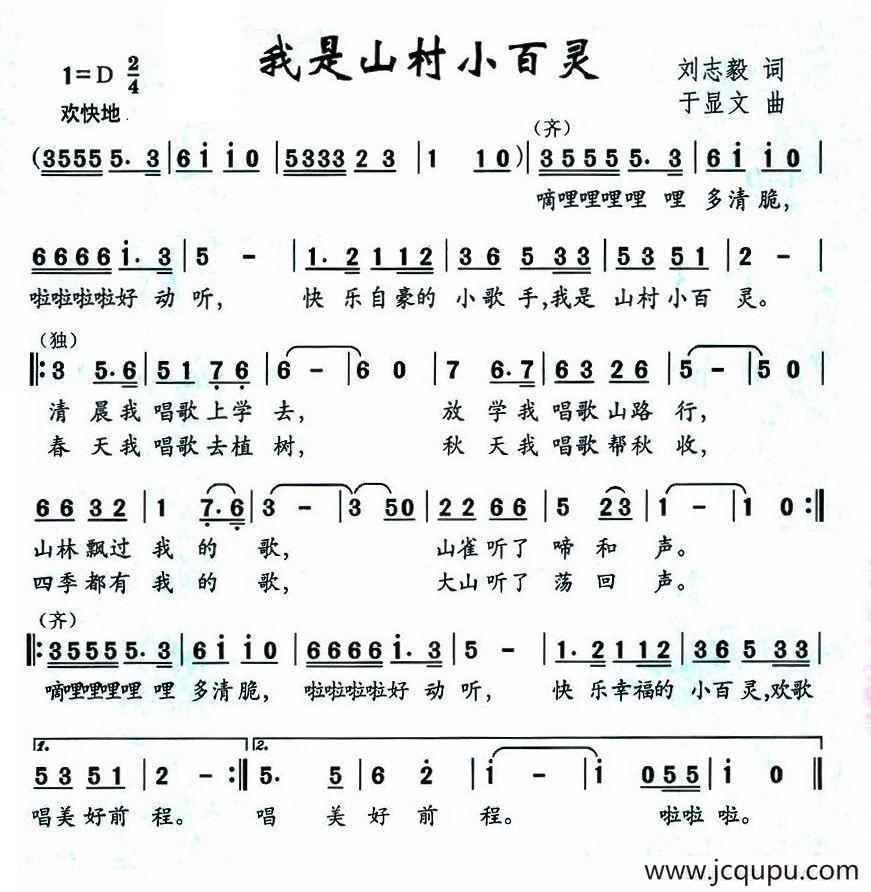 我是山村小百灵
1=D 2/4
刘志毅 词
欢快地
于显文 曲
(齐)
(3555 5. 3 | 6 i i 0 | 5333 2 3 | 1 1 0) | 3555 5 5. 3 | 6 i i 0 |
嘀哩哩哩哩 哩 多清脆,
6666 i. 3 | 5 - | 1. 2 1 12 | 3 6 5 33 | 5 3 5 1 | 2 - |
啦啦啦啦好 动 听, 快 乐自豪的 小歌手,我是 山村小百 灵。
(独)
‖: 3 5. 6 | 5 1 7 6 | 6 - | 6 0 | 7 6. 7 | 6 3 2 6 | 5 - | 5 0 |
清 晨我 唱歌上学 去, 放 学我 唱歌山路 行,
春 天我 唱歌去植 树, 秋 天我 唱歌帮秋 收,
6 6 3 2 | 1 7. 6 | 3 - | 3 5 0 | 2 2 6 6 | 5 2 3 | 1 - | 1 0 :‖
山林飘过 我 的 歌, 山雀听了 啼 和 声。
四季都有 我 的 歌, 大山听了 荡 回 声。
(齐)
‖: 35555 5. 3 | 6 i i 0 | 6666 i. 3 | 5 - | 1. 2 1 12 | 3 6 5 33 |
嘀哩哩哩哩 哩 多清脆, 啦啦啦啦好 动 听, 快 乐幸福的 小百灵,欢歌
1. 2.
5 3 5 1 | 2 - :‖ 5. 5 | 6 2 | i - | i 0 5 5 | i 0 ‖
唱美好前 程。 唱 美 好 前 程。 啦啦 啦。
www.jcqupu.com